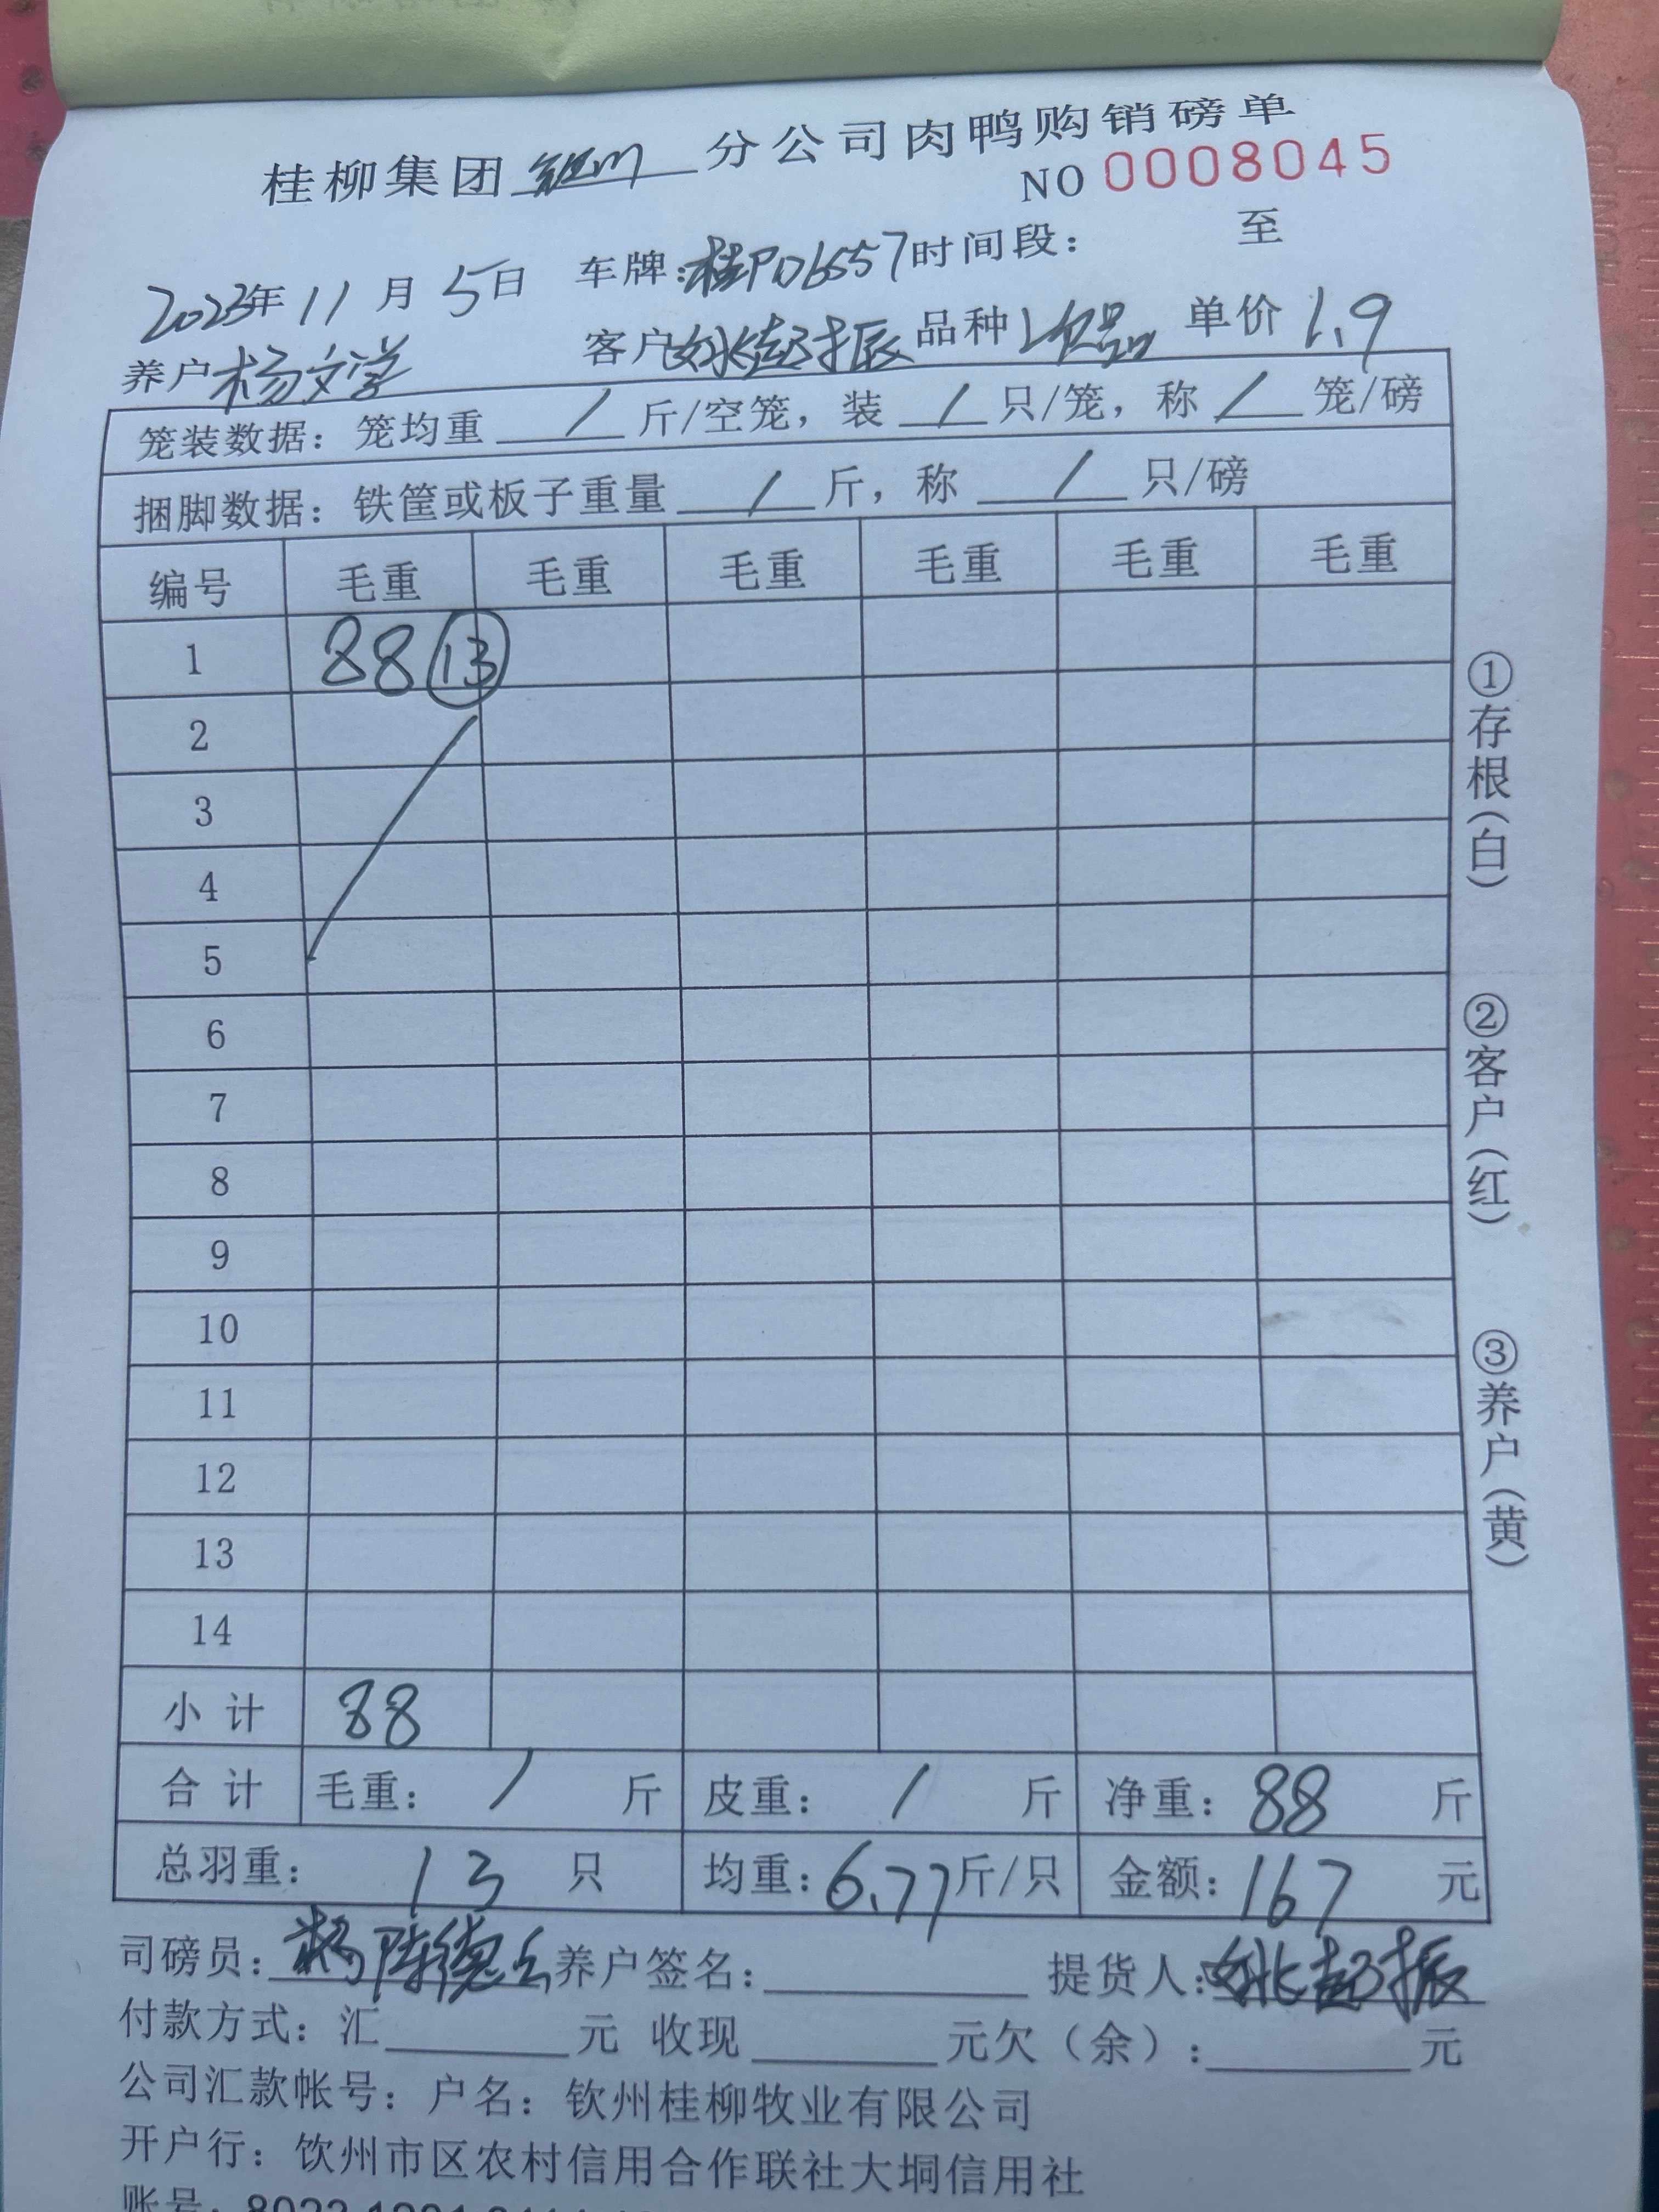 桂柳集团 钦州 分公司肉鸭购销磅单
NO 0008045
2023年 11 月 5日 车牌:桂PD6557 时间段: 至
养户 杨文学 客户 姚起振 品种 次品 单价 1.9
笼装数据: 笼均重 / 斤/空笼, 装 / 只/笼, 称 / 笼/磅
捆脚数据: 铁筐或板子重量 / 斤, 称 / 只/磅
编号 毛重 毛重 毛重 毛重 毛重 毛重
1 88 ⑬
2
3
4
5
6
7
8
9
10
11
12
13
14
小计 88
合计 毛重: / 斤 皮重: / 斤 净重: 88 斤
总羽重: 13 只 均重: 6.77 斤/只 金额: 167 元
司磅员: 养户签名: 提货人: 姚起振
付款方式: 汇 元 收现 元欠(余): 元
公司汇款帐号: 户名: 钦州桂柳牧业有限公司
开户行: 钦州市区农村信用合作联社大垌信用社
账号:
①存根(白)
②客户(红)
③养户(黄)